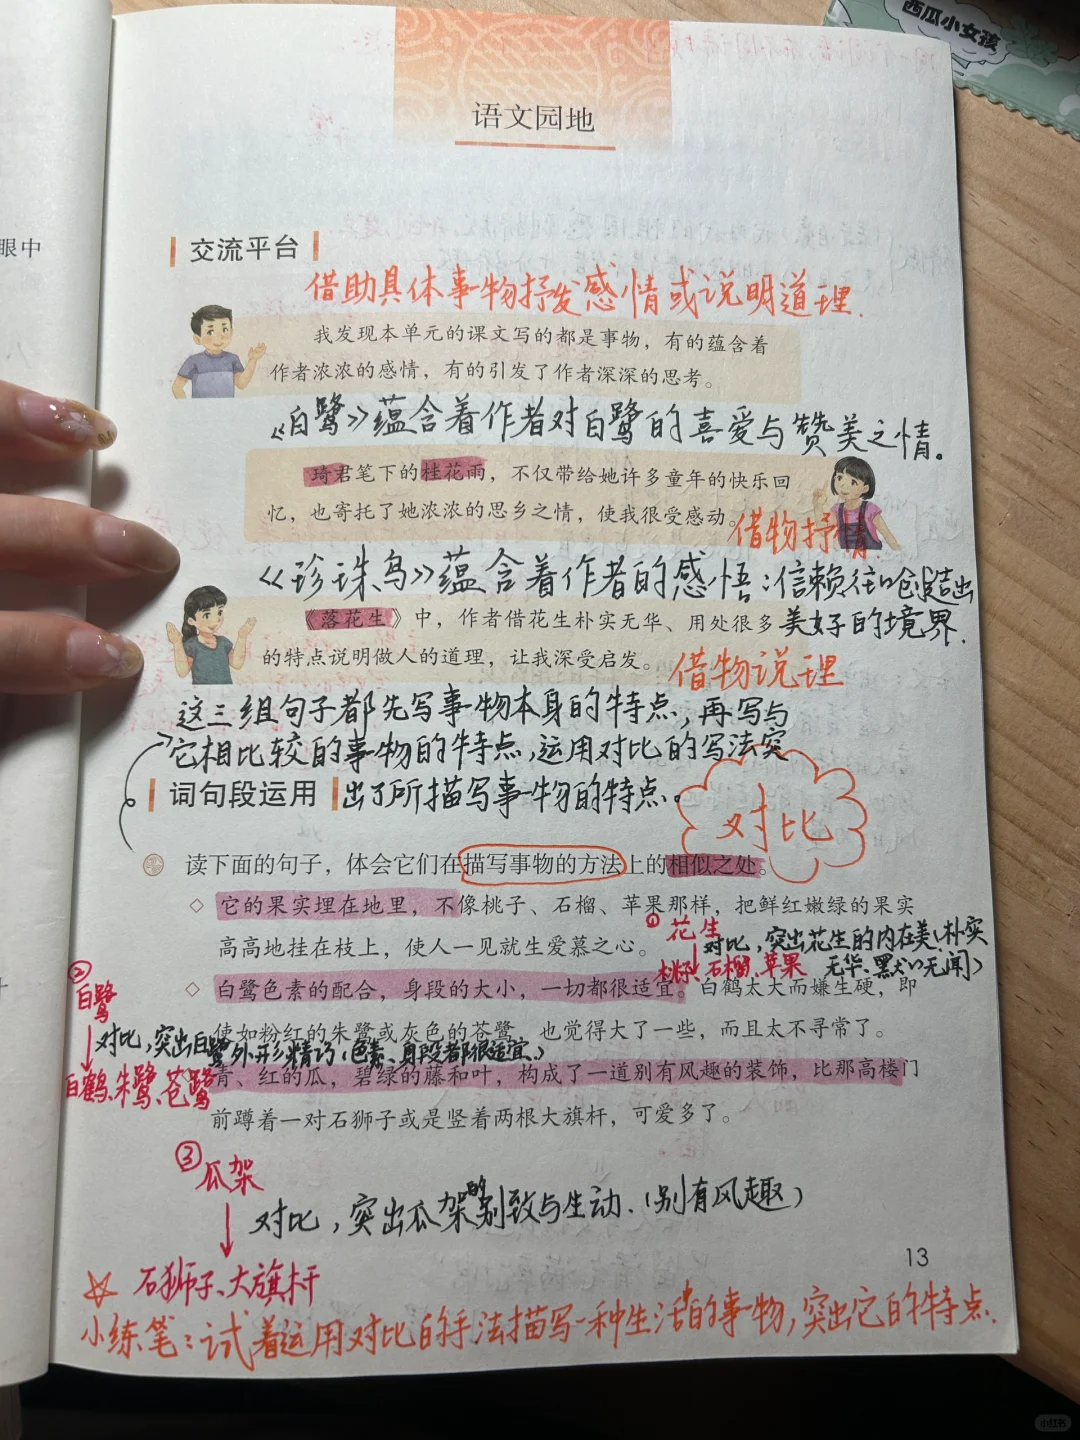 西瓜小女孩
语文园地
眼中
交流平台
借助具体事物抒发感情或说明道理.
我发现本单元的课文写的都是事物，有的蕴含着
作者浓浓的感情，有的引发了作者深深的思考。
《白鹭》蕴含着作者对白鹭的喜爱与赞美之情。
琦君笔下的桂花雨，不仅带给她许多童年的快乐回
忆，也寄托了她浓浓的思乡之情，使我很受感动。
借物抒情
《珍珠鸟》蕴含着作者的感悟：信赖往口创造出
美好的境界.
《落花生》中，作者借花生朴实无华、用处很多
的特点说明做人的道理，让我深受启发。
借物说理
这三组句子都先写事物本身的特点，再写与
它相比较的事物的特点，运用对比的写法突
出了所描写事物的特点。
词句段运用
对比
读下面的句子，体会它们在描写事物的方法上的相似之处。
◇ 它的果实埋在地里，不像桃子、石榴、苹果那样，把鲜红嫩绿的果实
高高地挂在枝上，使人一见就生爱慕之心。
①花生
对比，突出花生的内在美（朴实
无华、默口无闻）
桃子、石榴、苹果
◇ 白鹭色素的配合，身段的大小，一切都很适宜。白鹤太大而嫌生硬，即
使如粉红的朱鹭或灰色的苍鹭，也觉得大了一些，而且太不寻常了。
②
白鹭
对比，突出白鹭外形精巧（色素、身段都很适宜.）
白鹤、朱鹭、苍鹭
青、红的瓜，碧绿的藤和叶，构成了一道别有风趣的装饰，比那高楼门
前蹲着一对石狮子或是竖着两根大旗杆，可爱多了。
③瓜架
对比，突出瓜架的别致与生动.（别有风趣）
石狮子、大旗杆
13
☆小练笔：试着运用对比的手法描写一种生活中的事物，突出它的特点.
小红书